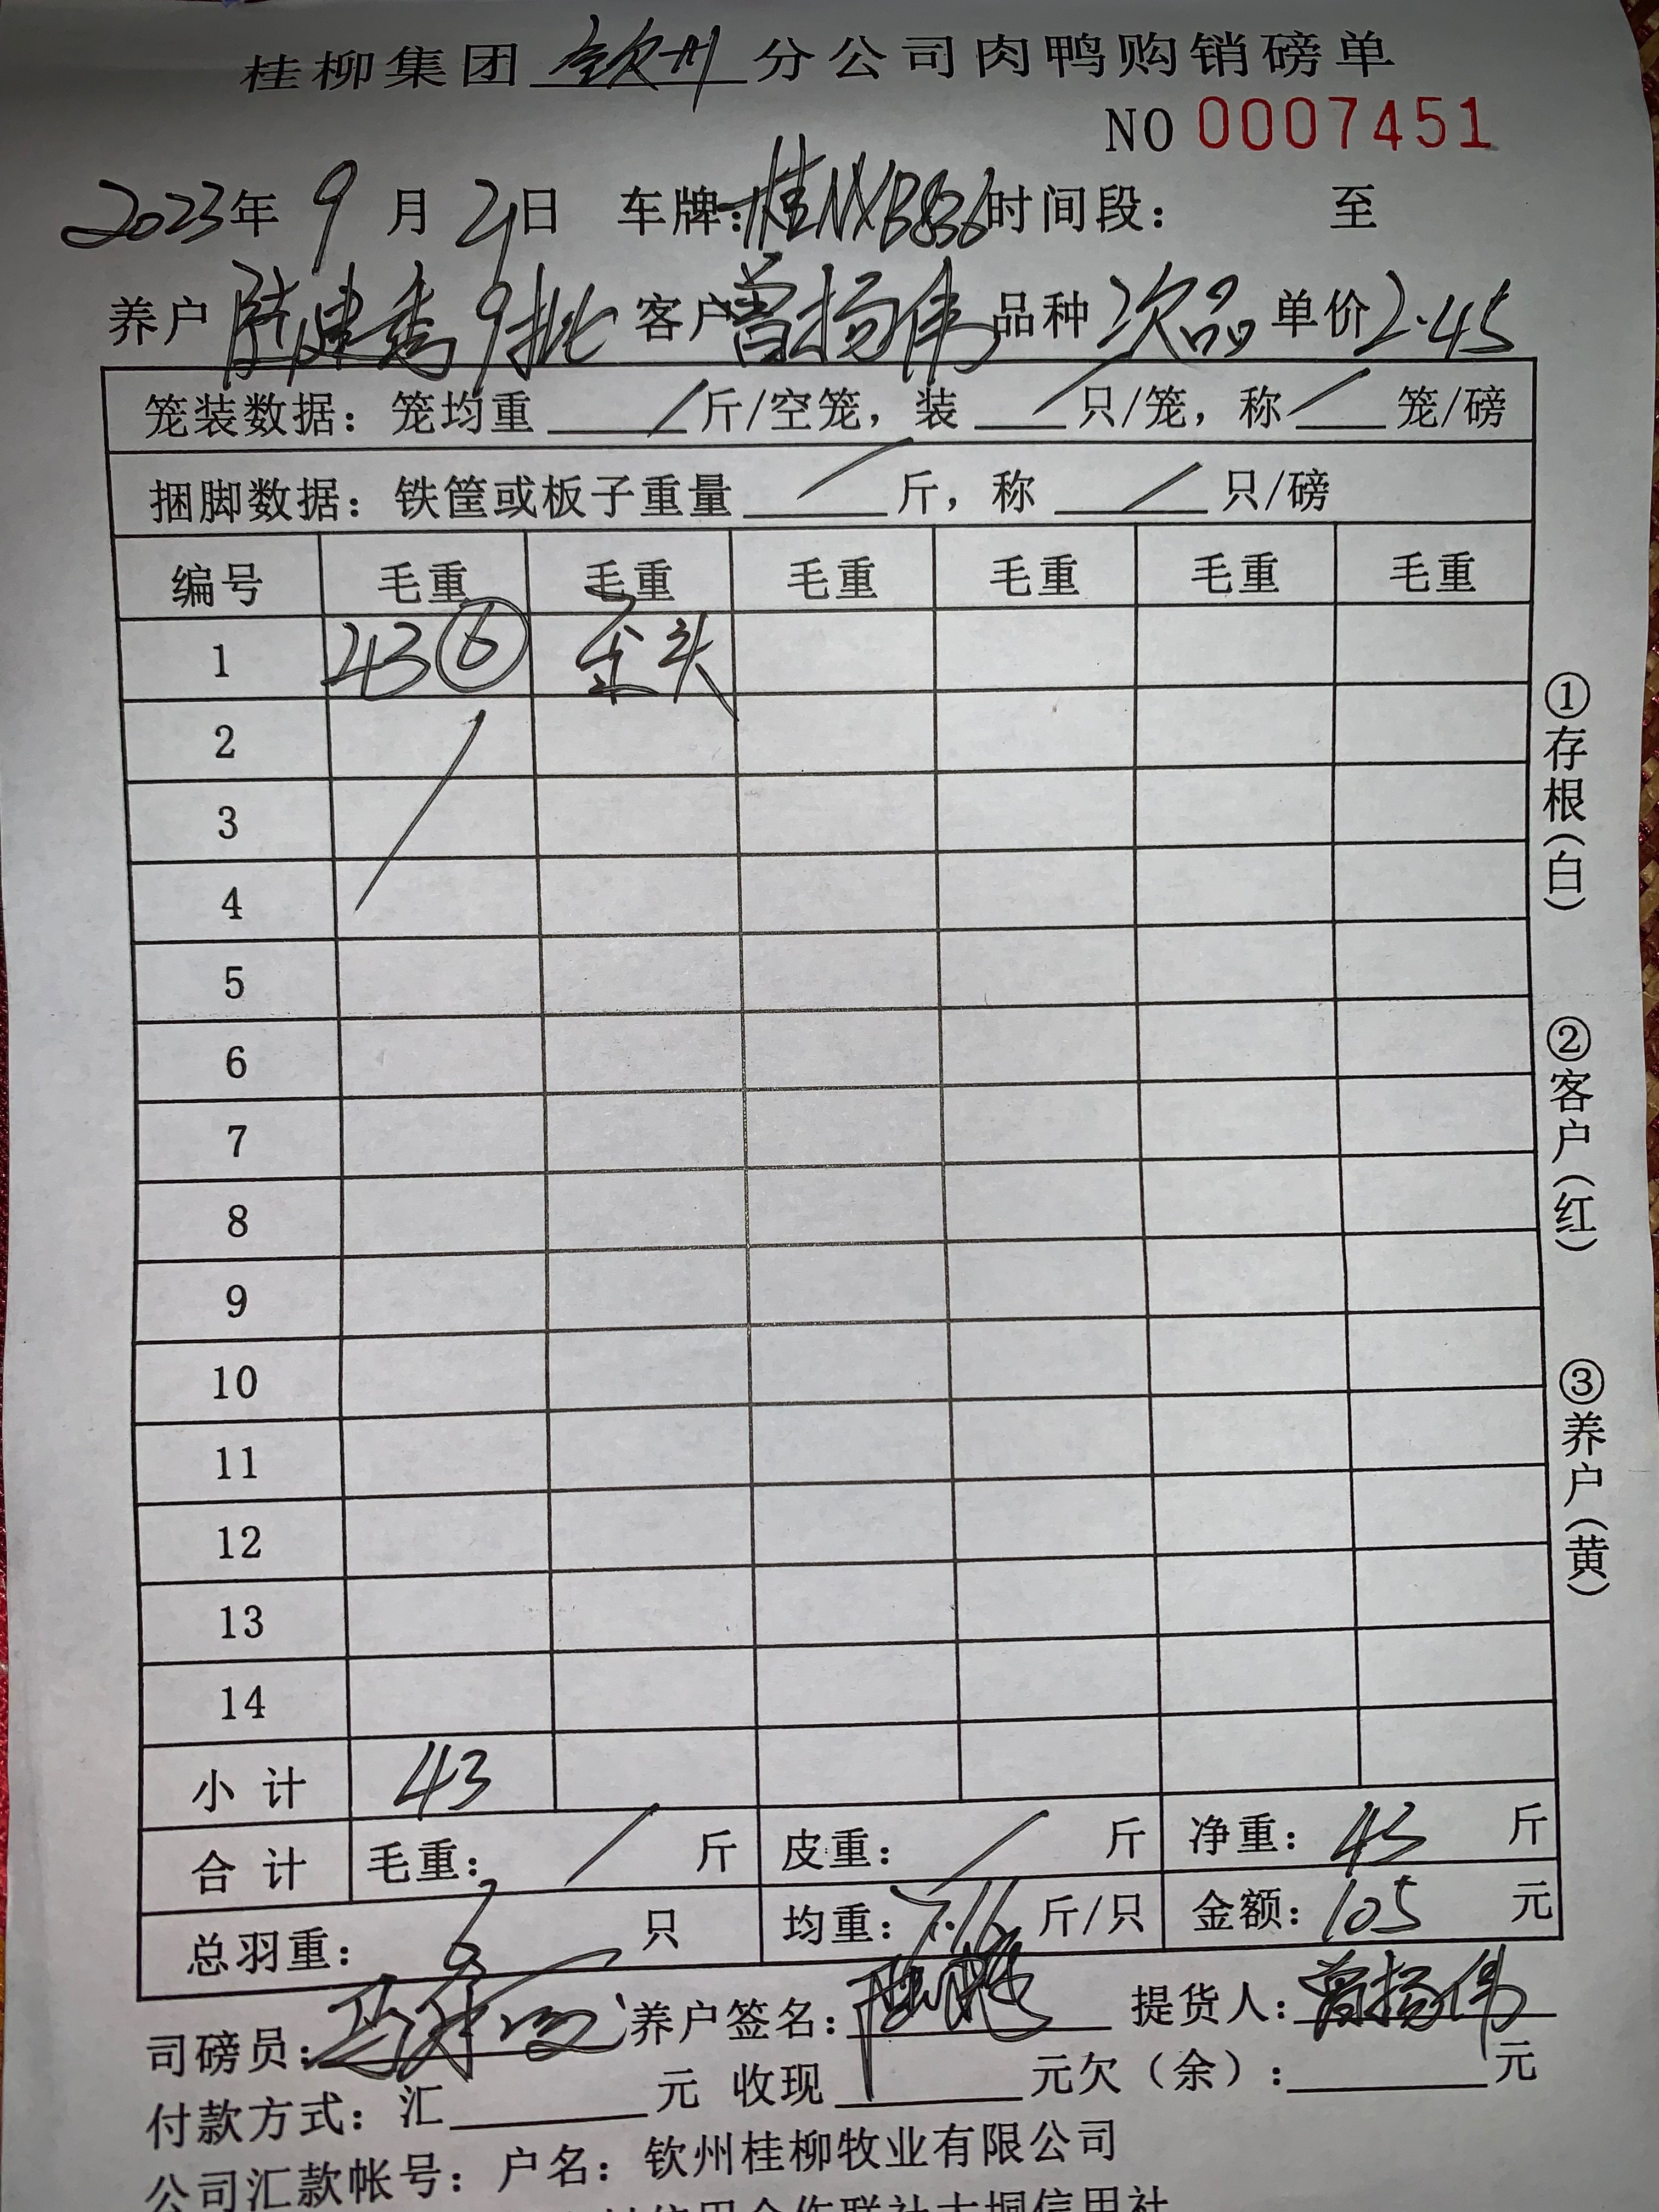 桂柳集团 钦州 分公司肉鸭购销磅单
NO 0007451
2023年 9 月 21日 车牌:桂NXB836时间段: 至
养户 陆建秀 9批 客户曾扬伟 品种 次品 单价2.45
笼装数据: 笼均重 / 斤/空笼, 装 / 只/笼, 称 / 笼/磅
捆脚数据: 铁筐或板子重量 / 斤, 称 / 只/磅
编号 毛重 毛重 毛重 毛重 毛重 毛重
1 43⑥ 歪头
2
3
4
5
6
7
8
9
10
11
12
13
14
小 计 43
合 计 毛重: / 斤 皮重: / 斤 净重: 43 斤
总羽重: 6 只 均重: 7.16 斤/只 金额: 105 元
司磅员: 养户签名: 提货人: 曾扬伟
付款方式: 汇 元 收现 元欠(余): 元
公司汇款帐号: 户名: 钦州桂柳牧业有限公司
信用合作联社大垌信用社
①存根(白)
②客户(红)
③养户(黄)